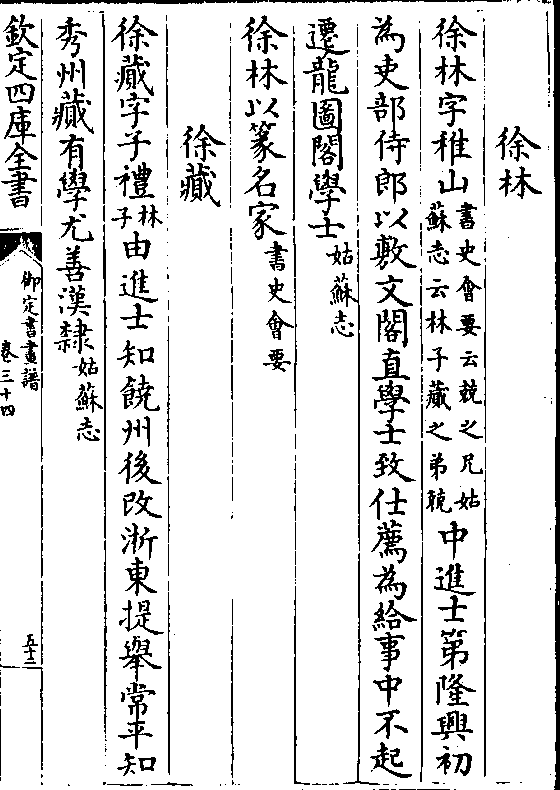 徐林
徐林字稚山書史會要云兢之兄姑蘇志云林子蕆之弟兢中進士第隆興初
為吏部侍郎以敷文閣直學士致仕薦為給事中不起
遷龍圖閣學士姑蘇志
徐林以篆名家書史會要
徐蕆
徐蕆字子禮林子由進士知饒州後改浙東提舉常平知
秀州蕆有學尤善漢隸姑蘇志
欽定四庫全書
御定書畫譜
卷三十四
五十二